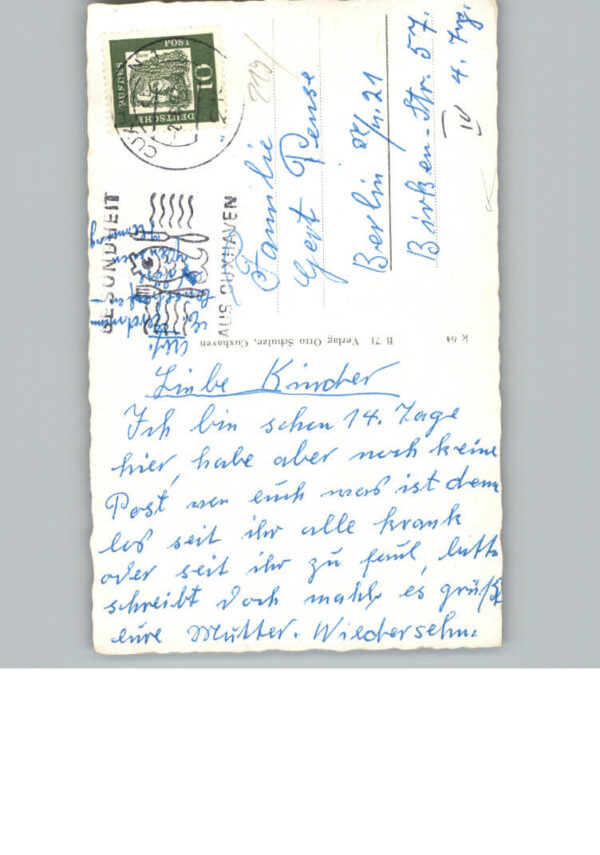 DEUTSCHE BUNDESPOST
10
CUXHAVEN
GESUNDHEIT
AUS CUXHAVEN
219
Familie
Gert Pense
Berlin
21
Birken-Str. 57.
IV 4. Trg.
Abs.
K 64
B 71 Verlag Otto Schulze, Cuxhaven
Liebe Kinder
Ich bin schon 14. Tage
hier, habe aber noch keine
Post von euch was ist denn
los seit ihr alle krank
oder seit ihr zu faul, bitte
schreibt doch mahl es grüßt
eure Mutter. Wiedersehn.